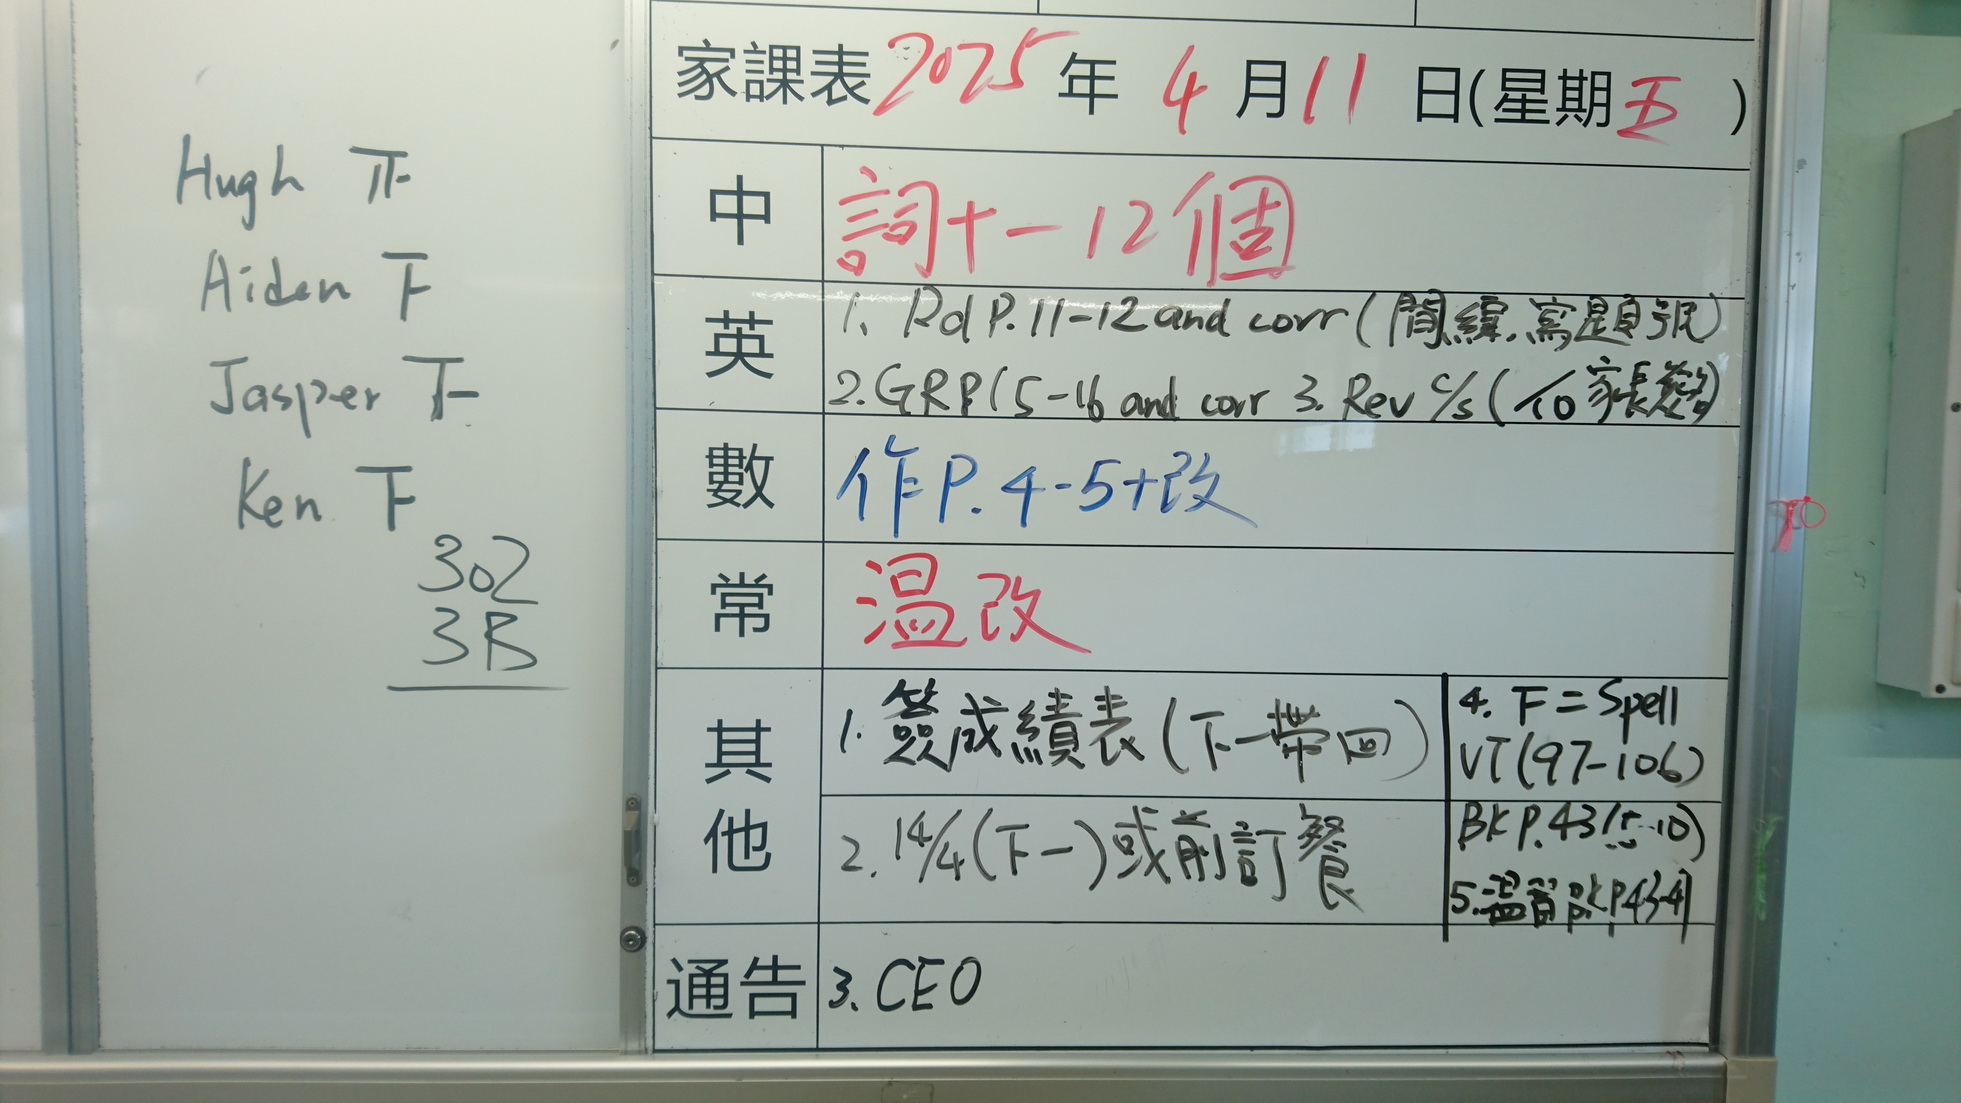 Hugh 正
Aiden 下
Jasper 正
Ken 下
302
3B
家課表2025年4月11日(星期五)
中
詞十一12個
英
1. Rd P.11-12 and corr (間線,寫題號)
2. GRP15-16 and corr 3. Rev C/S (家長簽)
數
作P.4-5+改
常
温改
其他
1. 簽成績表(下一帶回)
2. 14/4(下一)或前訂餐
4. 下=Spell
VT(97-106)
BK P.43(5-10)
5.溫習 BK P.43-4
通告
3. CEO